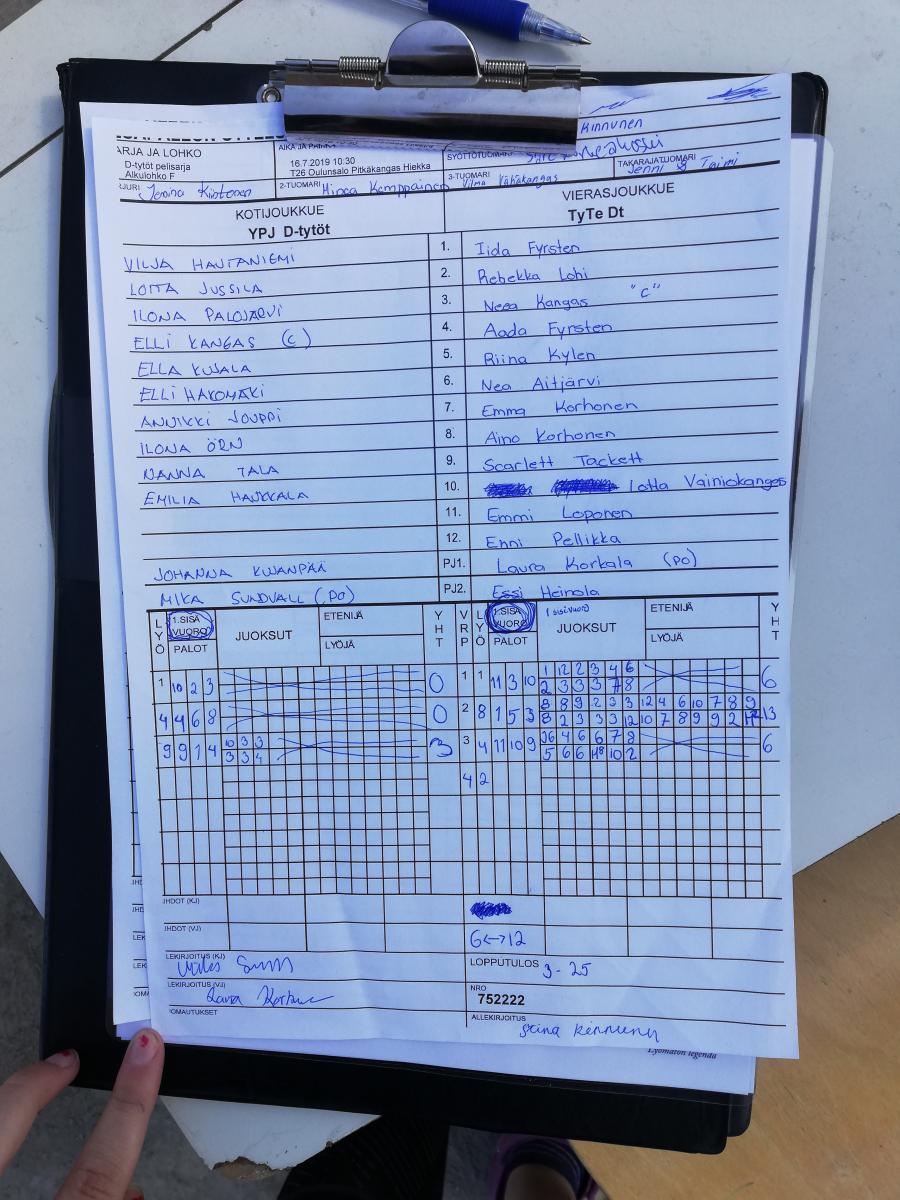 Kinnunen
ARJA JA LOHKO
D-tytöt pelisarja
Alkulohko F
16.7.2019 10:30
T26 Oulunsalo Pitkäkangas Hiekka
SYÖTTÖTUOMARI
TAKARAJATUOMARI
Jenni & Taimi
2-TUOMARI Minea Kemppainen
3-TUOMARI Vilma Vähäkangas
KOTIJOUKKUE
YPJ D-tytöt
VIERASJOUKKUE
TyTe Dt
VILJA HAUTANIEMI 1. Iida Fyrsten
LOTTA JUSSILA 2. Rebekka Lohi
ILONA PALOJÄRVI 3. Neea Kangas "C"
ELLI KANGAS (C) 4. Aada Fyrsten
ELLA KUJALA 5. Riina Kylen
ELLI HAKOMÄKI 6. Nea Aitjärvi
ANNIKKI JOUPPI 7. Emma Korhonen
ILONA ÖRN 8. Aino Korhonen
NANNA TALA 9. Scarlett Tackett
EMILIA HAUKKALA 10. Lotta Vainiokangas
11. Emmi Loponen
12. Enni Pellikka
JOHANNA KUJANPÄÄ PJ1. Laura Korkala (PO)
MIKA SUNDVALL (PO) PJ2. Essi Heinola
LYÖ 1.SISÄ VUORO PALOT JUOKSUT ETENIJÄ LYÖJÄ YHT VRP LYÖ 1.SISÄ VUORO PALOT (sisävuoro) JUOKSUT ETENIJÄ LYÖJÄ YHT
1 10 2 3 0 1 1 11 3 10 1 12 2 3 4 6 6
2 3 3 3 7 8
4 4 6 8 0 2 8 1 5 3 8 8 9 2 3 3 12 4 6 10 7 8 9 13
8 2 3 3 3 12 10 7 8 9 9 2
9 9 1 4 10 3 3 3 3 4 11 10 9 4 6 6 7 8 6
3 3 4 5 6 6 10 2
4 2
IHDOT (KJ)
IHDOT (VJ) 6<->12
LEKIRJOITUS (KJ)
LOPPUTULOS 3 - 25
LEKIRJOITUS (VJ)
NRO
752222
OMAUTUKSET
ALLEKIRJOITUS
Lyömätön legenda